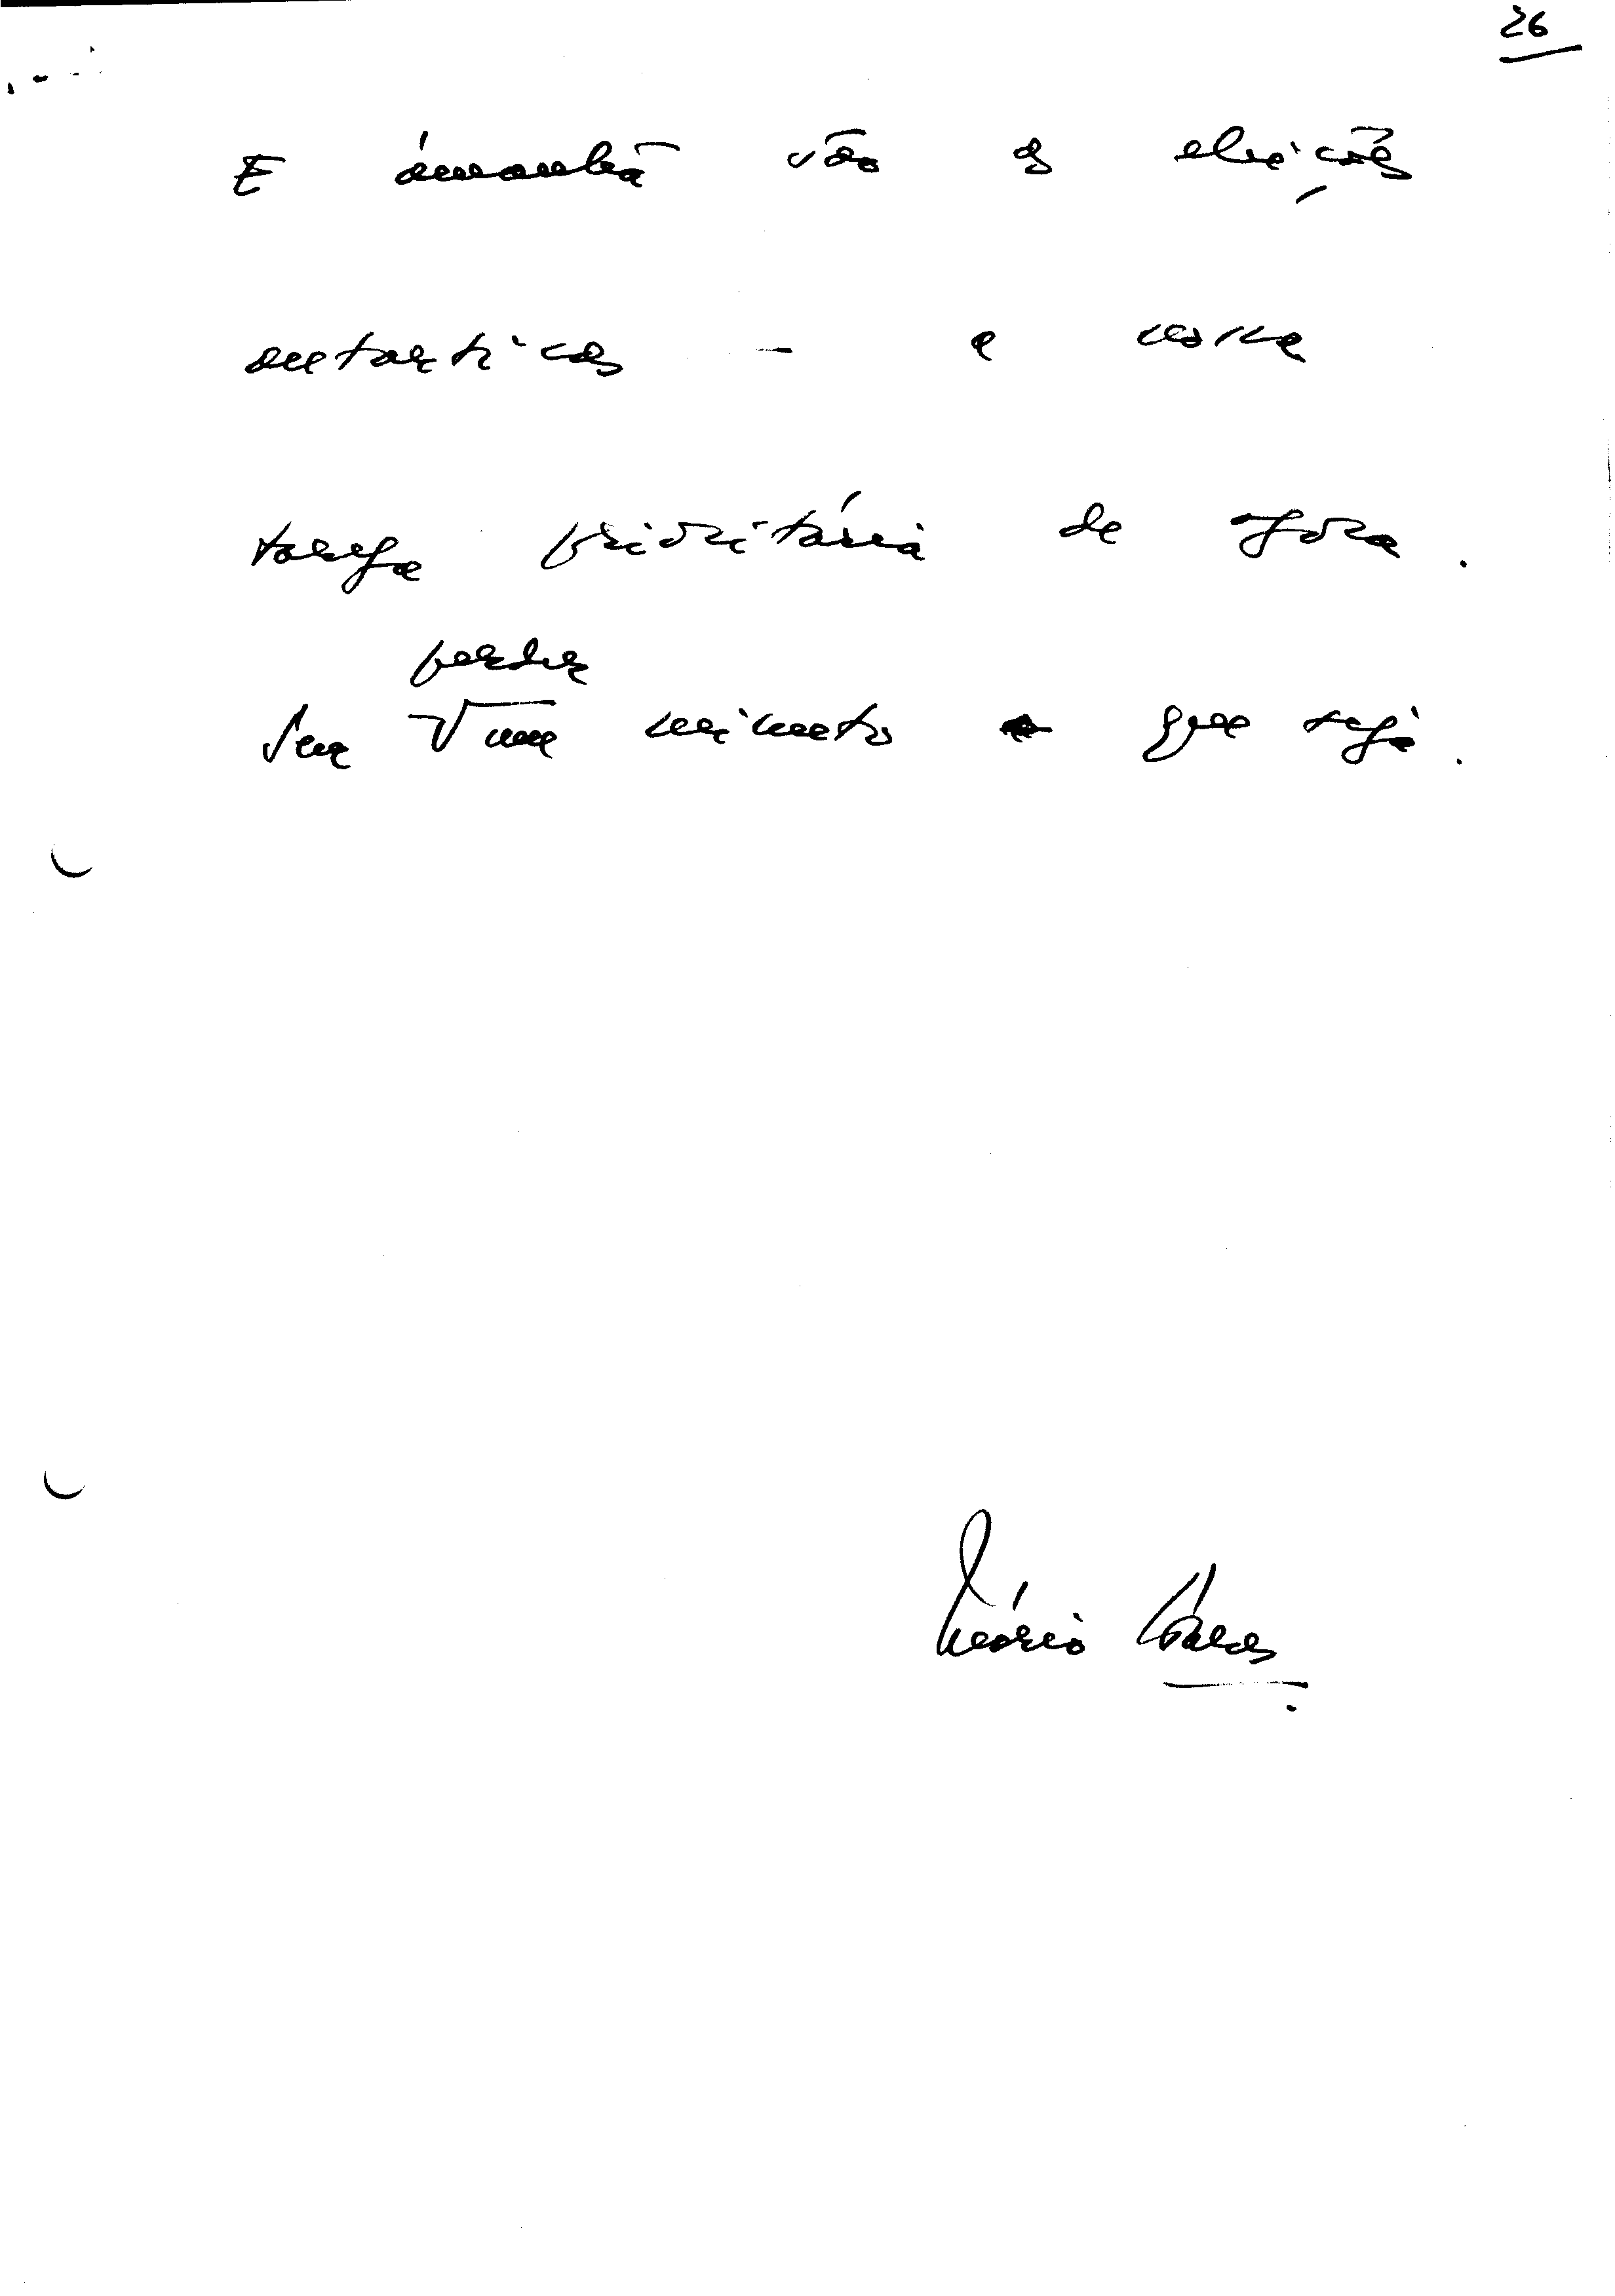 26
E àmanhã são as eleições,
autárticas - a nossa
tarefa prioritária de agora.
perder
Sem um minuto que seja.
Mário Soares